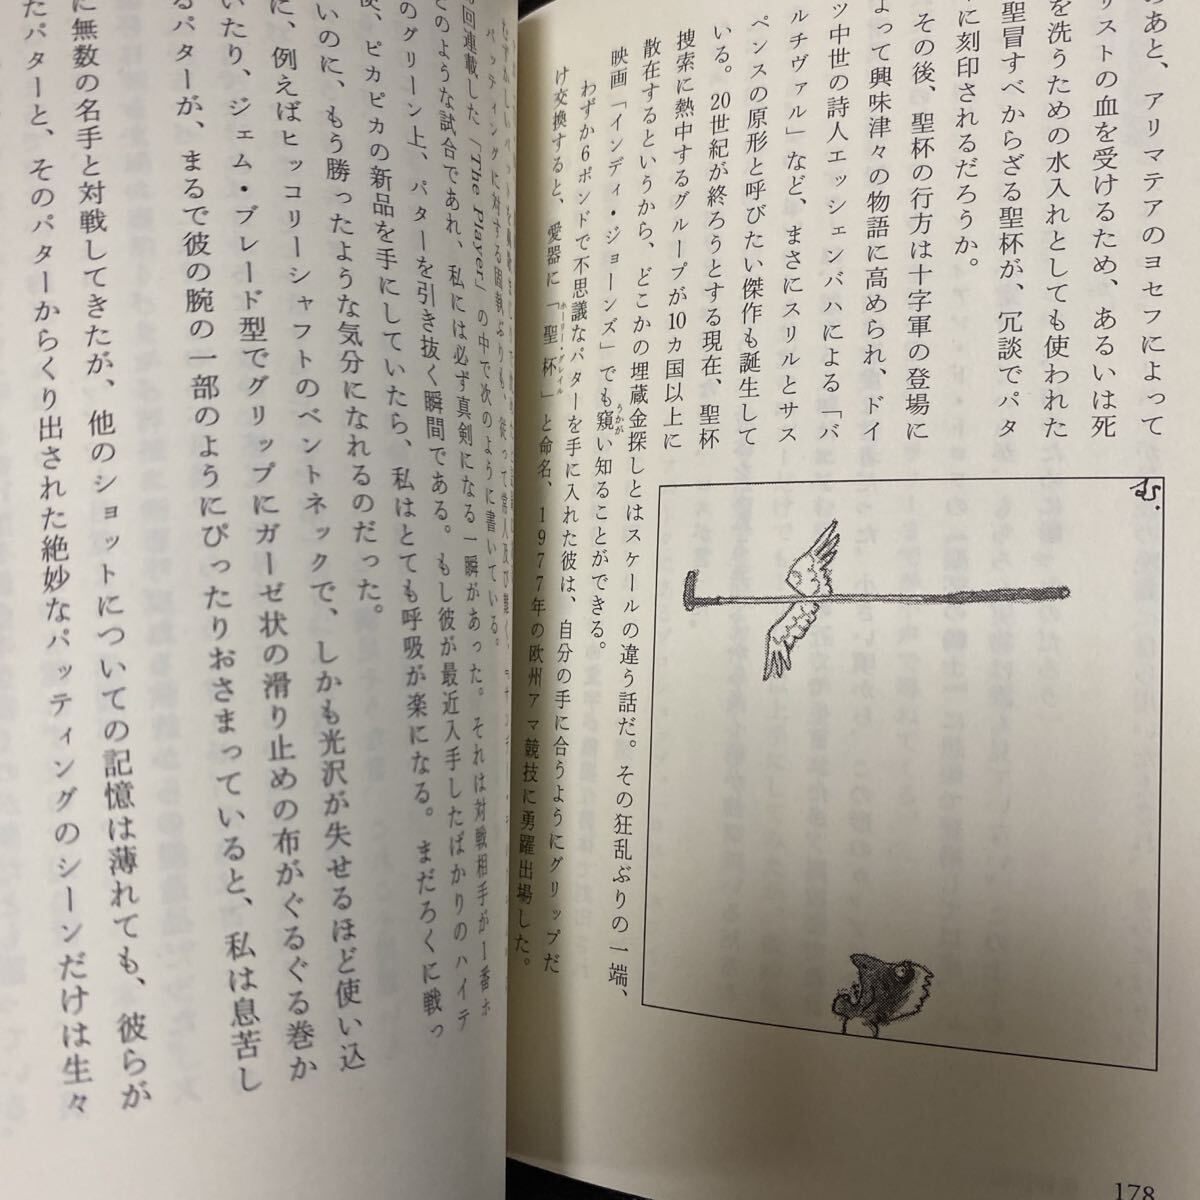 のあと、アリマテアのヨセフによって
リストの血を受けるため、あるいは死
を洗うための水入れとしても使われた
聖冒すべからざる聖杯が、冗談でパタ
に刻印されるだろうか。
その後、聖杯の行方は十字軍の登場に
よって興味津々の物語に高められ、ドイ
ツ中世の詩人エッシェンバハによる「パ
ルチヴァル」など、まさにスリルとサス
ペンスの原形と呼びたい傑作も誕生して
いる。20世紀が終ろうとする現在、聖杯
捜索に熱中するグループが10カ国以上に
散在するというから、どこかの埋蔵金探しとはスケールの違う話だ。その狂乱ぶりの一端、
映画「インディ・ジョーンズ」でも窺い知ることができる。
うかが
わずか6ポンドで不思議なパターを手に入れた彼は、自分の手に合うようにグリップだ
け交換すると、愛器に「聖杯」と命名、1977年の欧州アマ競技に勇躍出場した。
ホーリー・グレイル
JS.
178
パッティングに対する固執ぶりも、従って常人及び難く、
回連載した「The Player」の中で次のように書いている。
どのような試合であれ、私には必ず真剣になる一瞬があった。それは対戦相手が1番ホ
のグリーン上、パターを引き抜く瞬間である。もし彼が最近入手したばかりのハイテ
ピカピカの新品を手にしていたら、私はとても呼吸が楽になる。まだろくに戦っ
いのに、もう勝ったような気分になれるのだった。
に、例えばヒッコリーシャフトのベントネックで、しかも光沢が失せるほど使い込
いたり、ジェム・ブレード型でグリップにガーゼ状の滑り止めの布がぐるぐる巻か
るパターが、まるで彼の腕の一部のようにぴったりおさまっていると、私は息苦し
に無数の名手と対戦してきたが、他のショットについての記憶は薄れても、彼らが
たパターと、そのパターからくり出された絶妙なパッティングのシーンだけは生々